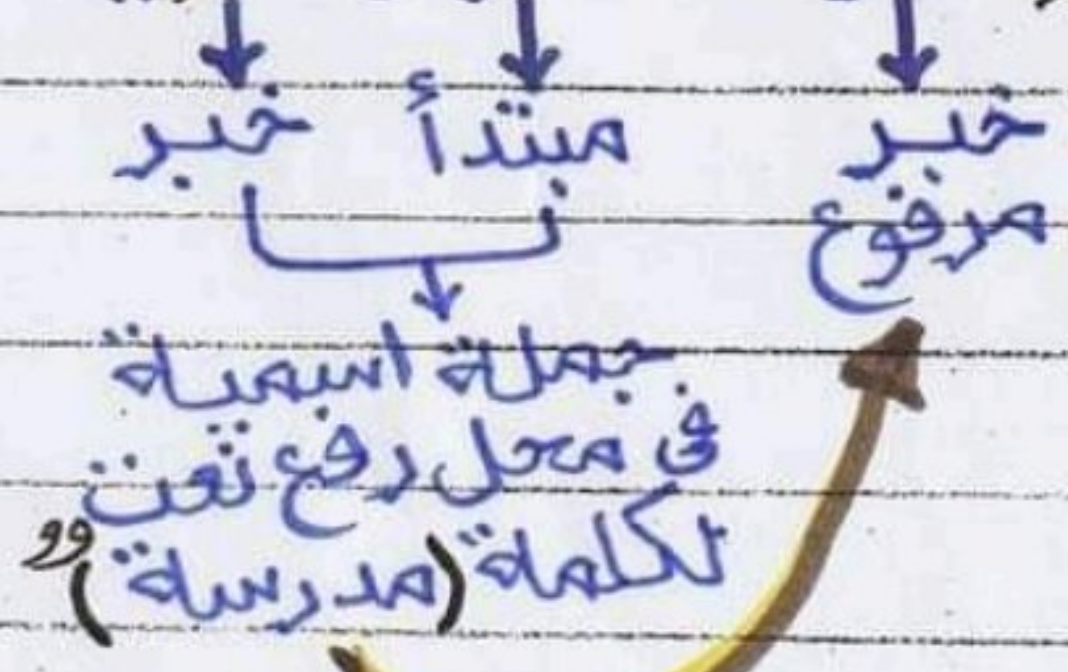 خبر
مرفوع
مبتدأ خبر
جملة اسمية
فى محل رفع نعت
لكلمة (مدرسة)"